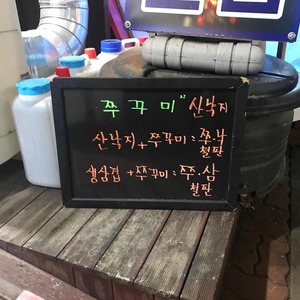 쭈꾸미 산낙지
산낙지+쭈꾸미=쭈.낙
철판
생삼겹+쭈꾸미=쭈.삼
철판